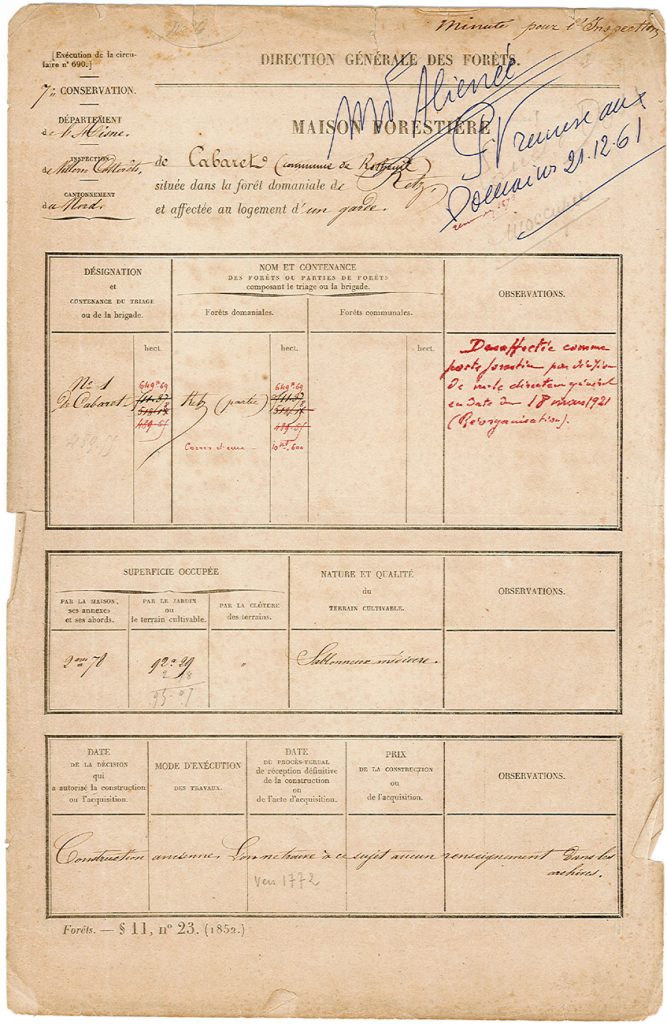 Minute pour l'Inspection
[Exécution de la circu-
laire nº 690.]
7me CONSERVATION.
DÉPARTEMENT
de l'Aisne.
INSPECTION
de Villers Cotterêts,
CANTONNEMENT
du Nord.
DIRECTION GÉNÉRALE DES FORÊTS.
MAISON FORESTIÈRE
de Cabaret (commune de Retheuil)
située dans la forêt domaniale de Retz
et affectée au logement d'un garde.
Mf Aliénée
PV remise aux
Domaines 21.12.61
DÉSIGNATION
et
CONTENANCE DU TRIAGE
ou de la brigade.
NOM ET CONTENANCE
DES FORÊTS OU PARTIES DE FORÊTS
composant le triage ou la brigade.
Forêts domaniales.
Forêts communales.
OBSERVATIONS.
hect.
hect.
hect.
Nº 1
Le Cabaret
649h69
511.87
512.18
489.51
Retz (partie)
649h69
511.87
512.18
489.51
Cours d'eau
Désaffectée comme
poste forestier par décision
de Mr le directeur général
en date du 18 mars 1921
(Réorganisation).
SUPERFICIE OCCUPÉE
NATURE ET QUALITÉ
du
TERRAIN CULTIVABLE.
OBSERVATIONS.
PAR LA MAISON,
ses annexes
et ses abords.
PAR LE JARDIN
ou
le terrain cultivable.
PAR LA CLÔTURE
des terrains.
2ares 78
92a 29
2 78
95-07
"
Sablonneux médiocre.
DATE
DE LA DÉCISION
qui
a autorisé la construction
ou l'acquisition.
MODE D'EXÉCUTION
DES TRAVAUX.
DATE
DU PROCÈS-VERBAL
de réception définitive
de la construction
ou
de l'acte d'acquisition.
PRIX
DE LA CONSTRUCTION
ou
de l'acquisition.
OBSERVATIONS.
Construction ancienne. L'on ne trouve à ce sujet aucun renseignement dans les
archives.
Vers 1772
Forêts. — § 11, nº 23. (1852.)